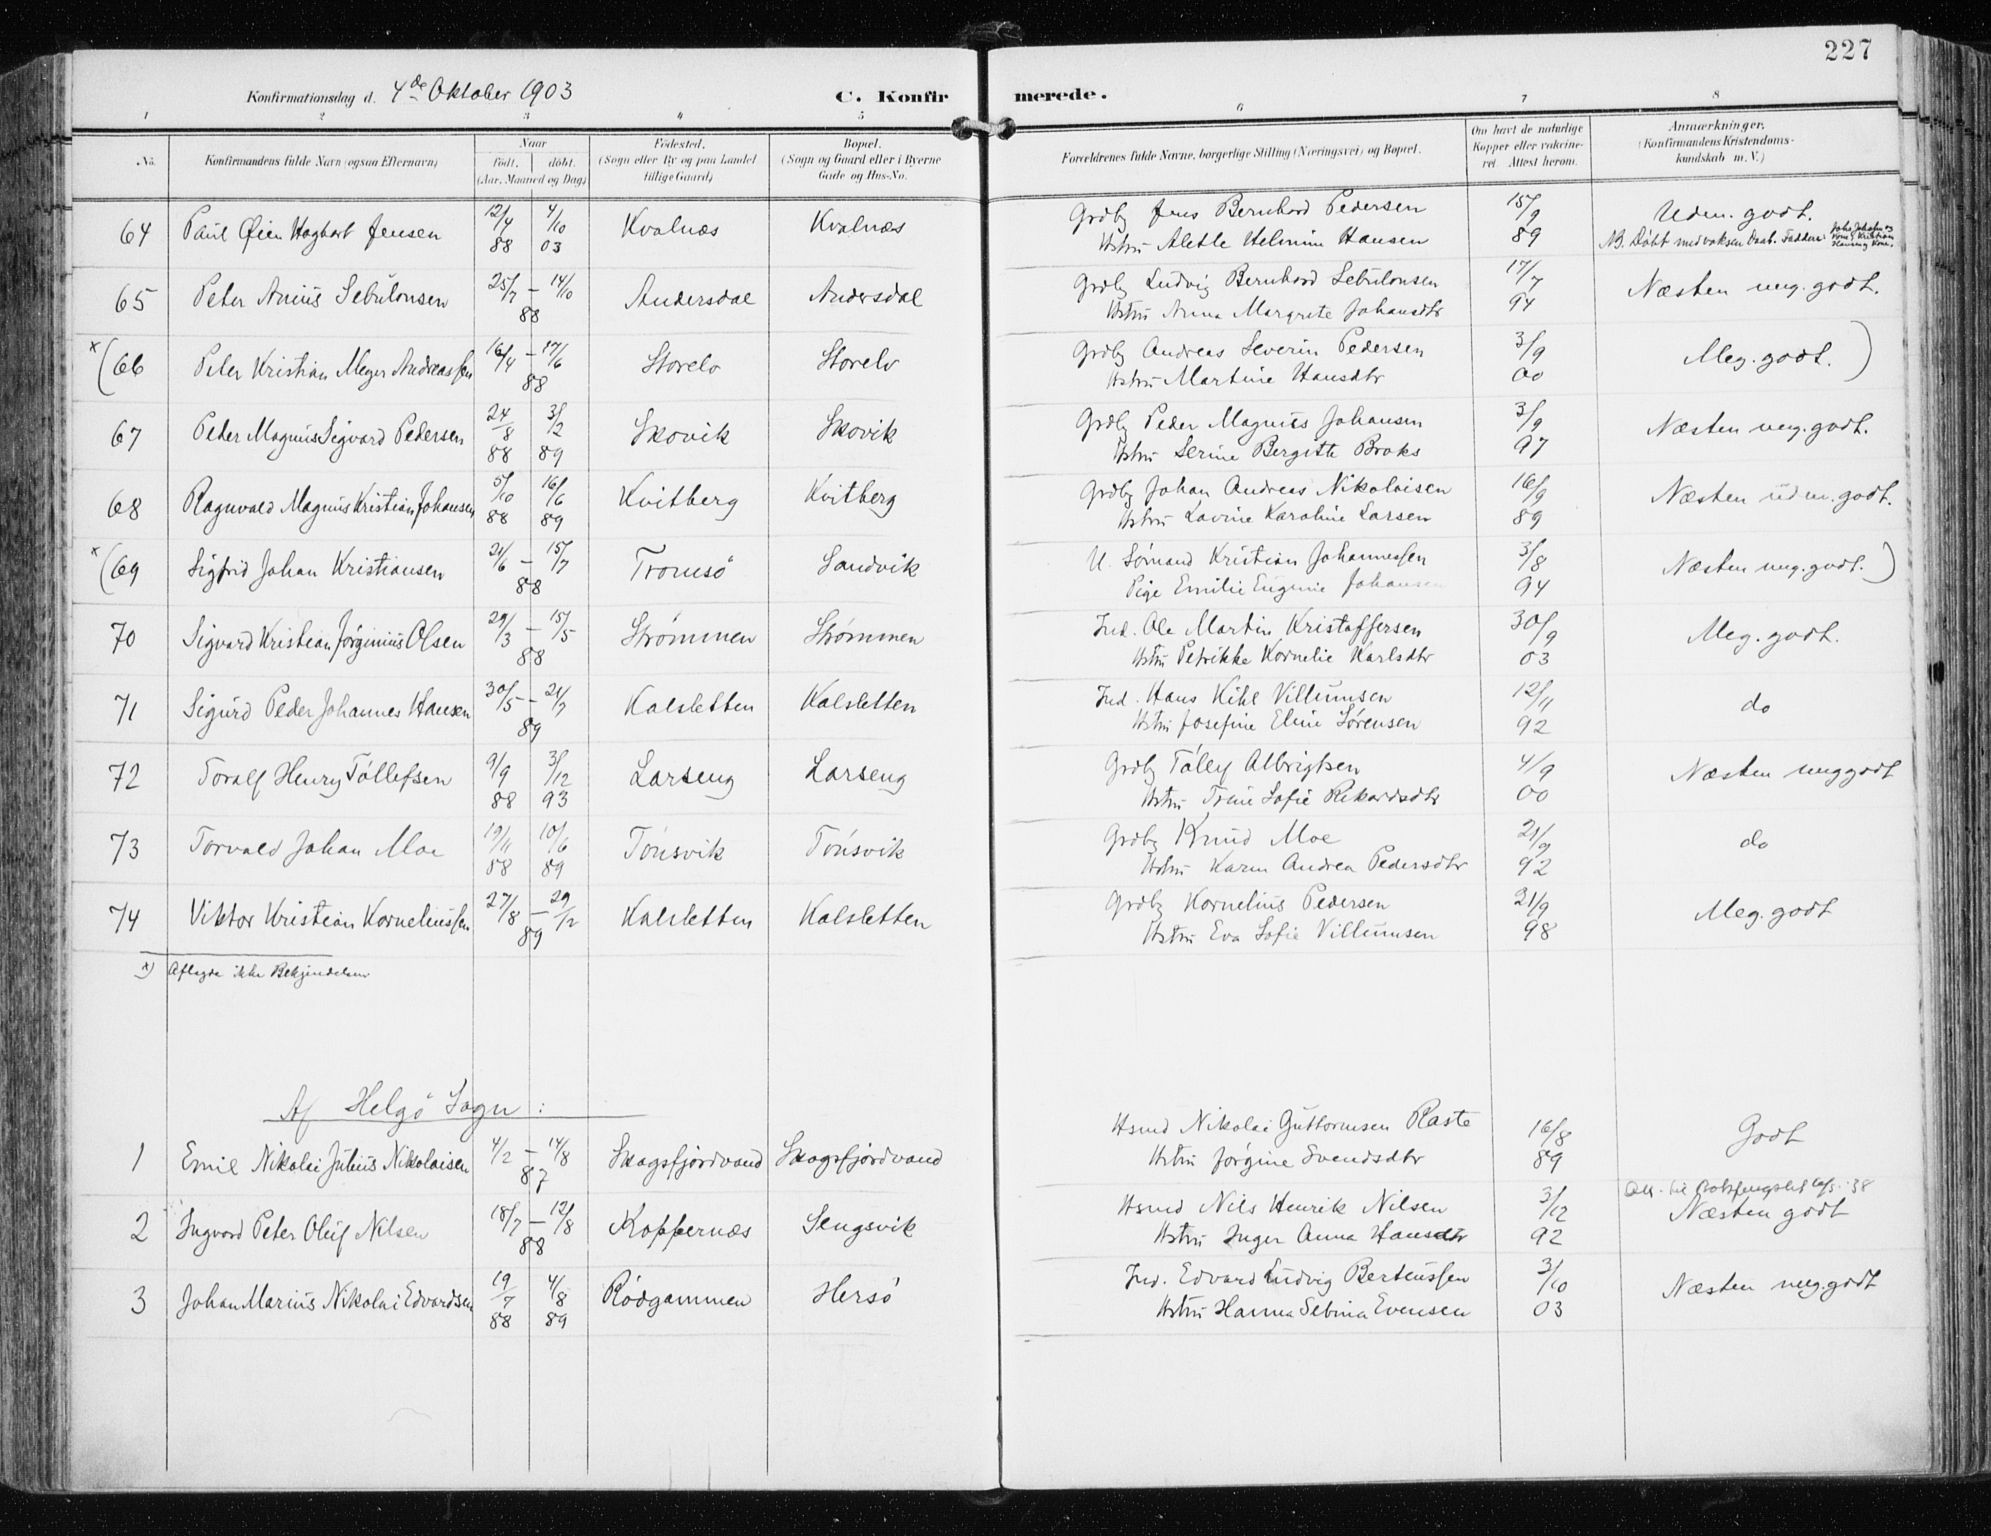 227
Konfirmationsdag d. 4de Oktober 1903
C. Konfirmerede.
1 2 3 4 5 6 7 8
No. Konfirmandens fulde Navn (ogsaa Efternavn) Naar født. døbt. (Aar, Maaned og Dag) Fødested. (Sogn eller By og paa Landet tillige Gaard) Bopæl. (Sogn og Gaard eller i Byerne Gade og Hus-No. Forældrenes fulde Navne, borgerlige Stilling (Næringsvei) og Bopæl. Om havt de naturlige Kopper eller vaccineret. Attest herom. Anmærkninger. (Konfirmandens Kristendomskundskab m. V.)
64 Paul Øien Hagbart Jensen 12/4 88 4/10 03 Kvalnæs Kvalnæs Grdbr Jens Bernhard Pedersen 15/9 89 Udm. godt.
Hstru Aletle Helmine Hansen NB. Døbt med voksen Daab. Faddere:
65 Peter Anius Sebulonsen 25/7 – 14/10 88 Andersdal Andersdal Grdbr Ludvig Bernhard Sebulonsen 17/7 94 Næsten meg. godt.
Hstru Anna Margrete Johansdtr
x (66 Peter Kristian Meyer Andreassen 16/4 – 17/6 88 Storelv Storelv Grdbr Andreas Severin Pedersen 3/9 00 Meg. godt.)
Hstru Martine Hansdtr
67 Peter Magnus Sigvard Pedersen 24/8 88 3/2 89 Skovik Skovik Grdbr Peder Magnus Johansen 3/9 97 Næsten meg. godt.
Hstru Serine Bergitte Broks
68 Ragnvald Magnus Kristian Johansen 5/10 88 16/6 89 Kvitberg Kvitberg Grdbr Johan Andreas Nikolaisen 16/9 89 Næsten udm. godt.
Hstru Lavine Karoline Larsen
x (69 Sigfrid Johan Kristiansen 21/6 – 15/7 88 Tromsö Sandvik U. Sömand Kristian Johannessen 3/8 94 Næsten meg. godt.)
Pige Emilie Eugenie Johansen
70 Sigvard Kristian Jørginius Olsen 29/3 – 15/5 88 Strømmen Strømmen Ind. Ole Martin Kristoffersen 30/9 03 Meg. godt.
Hstru Petrikke Kornelie Karlsdtr
71 Sigurd Peder Johannes Hansen 30/5 – 21/7 89 Kalsletten Kalsletten Ind. Hans Kihl Villumsen 12/11 92 do
Hstru Josefine Eline Sørensen
72 Toralf Henry Tøllefsen 9/9 88 3/12 93 Larseng Larseng Grdbr Tølley Albrigtsen 4/9 00 Næsten meg godt
Hstru Trine Sofie Rikardsdtr
73 Torvald Johan Moe 19/11 88 10/6 89 Tönsvik Tönsvik Grdbr Knud Moe 21/9 92 do
Hstru Karen Andrea Pedersdtr
74 Viktor Kristian Korneliussen 27/8 – 29/12 89 Kalsletten Kalsletten Grdbr Kornelius Pedersen 21/9 98 Meg. godt
Hstru Eva Sofie Villumsen
x) Aflagde ikke Bekjendelsen
Af Helgö Sogn:
1 Emil Nikolai Julius Nikolaisen 4/2 – 14/8 87 Skogsfjordvand Skogsfjordvand Hsmd Nikolai Guttormsen Raste 16/8 89 Godt
Hstru Jørgine Svendsdtr
2 Ingvard Peter Oluf Nilsen 18/7 – 12/8 88 Koppernæs Sengsvik Hsmd Nils Henrik Nilsen 3/12 92 Næsten godt
Hstru Inger Anna Hansdtr
3 Johan Marius Nikolai Edvardsen 19/7 88 4/8 89 Rödgammen Hersö Ind. Edvard Ludvig Berteussen 3/10 03 Næsten meg. godt
Hstru Hanna Sebina Evensen